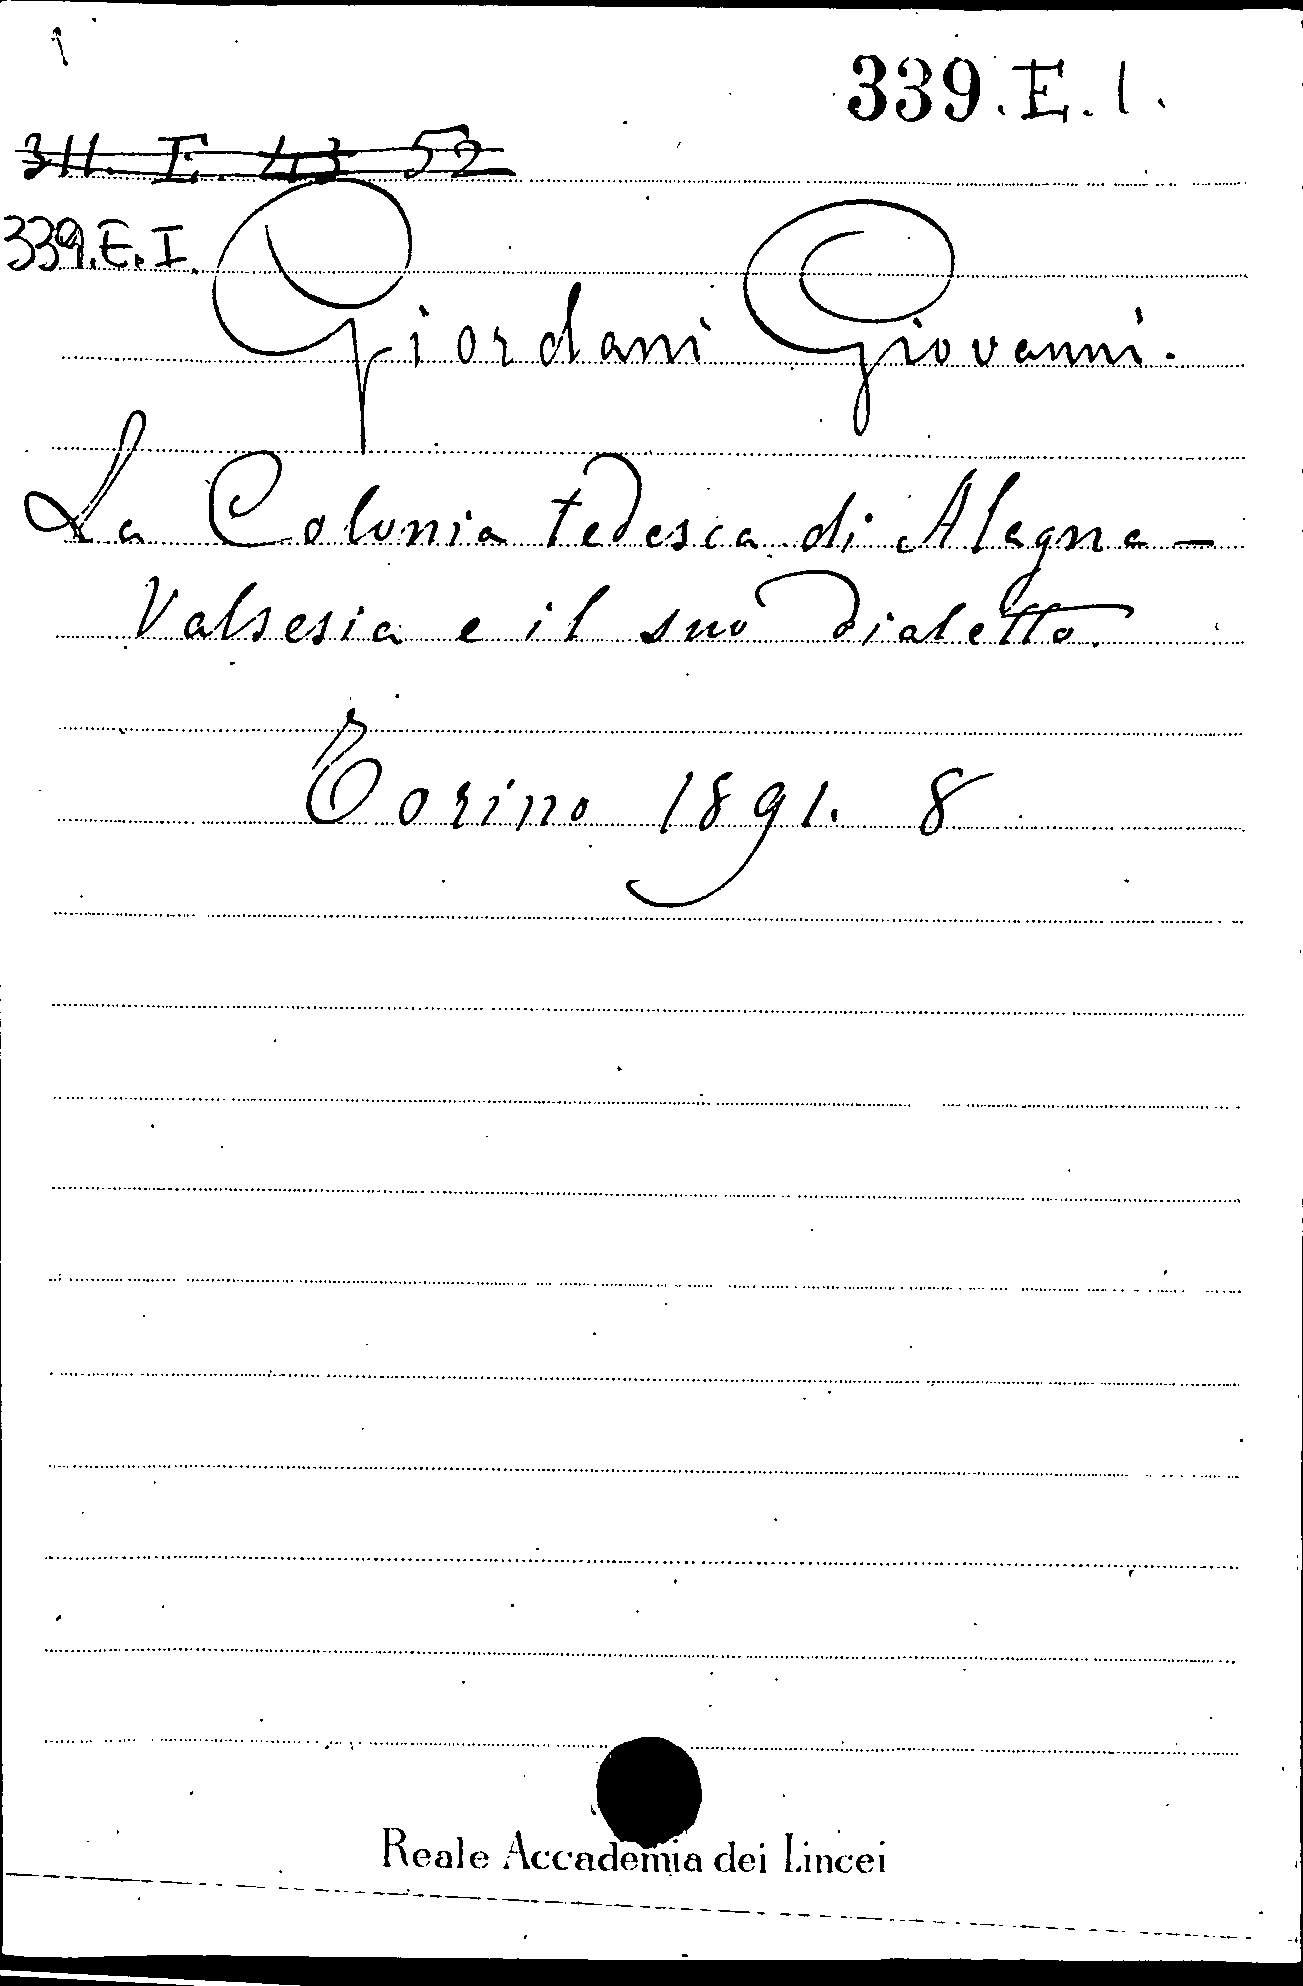 339.E.1.
311. E. 43 52
339.E.I.
Giordani Giovanni.
La Colonia tedesca di Alagna-
Valsesia e il suo dialetto.
Torino 1891. 8
Reale Accademia dei Lincei